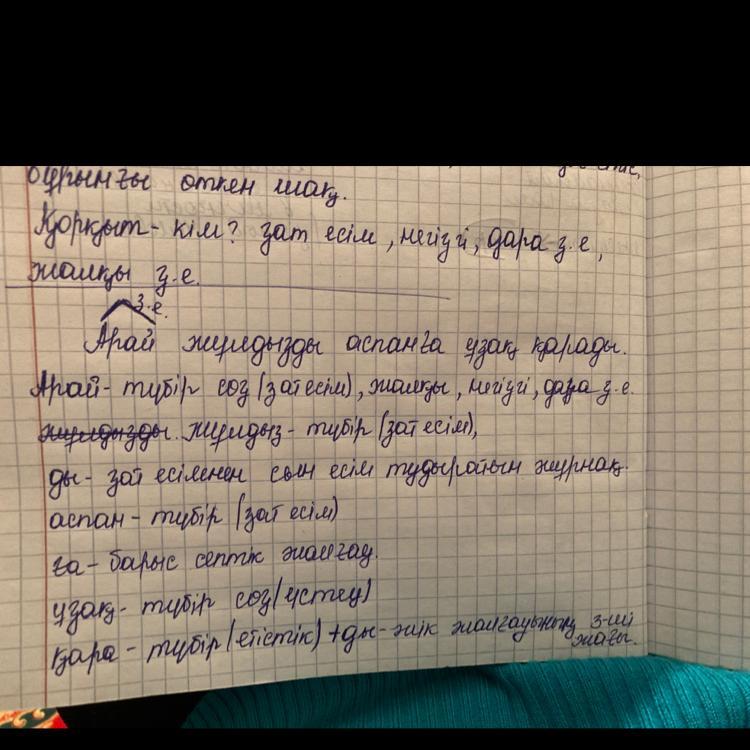 бұрынғы өткен шақ.
Қорқыт - кім? зат есім, негізгі, дара з.е,
жалқы з.е.
з.е.
Арай жұлдызды аспанға ұзақ қарады.
Арай - түбір сөз (зат есім), жалқы, негізгі, дара з.е.
жұлдызды. жұлдыз - түбір (зат есім),
ды - зат есімнен сын есім тудыратын жұрнақ.
аспан - түбір (зат есім)
ға - барыс септік жалғау.
ұзақ - түбір сөз (үстеу)
қара - түбір (етістік) + ды - жік жалғауының 3-ші
жағы.